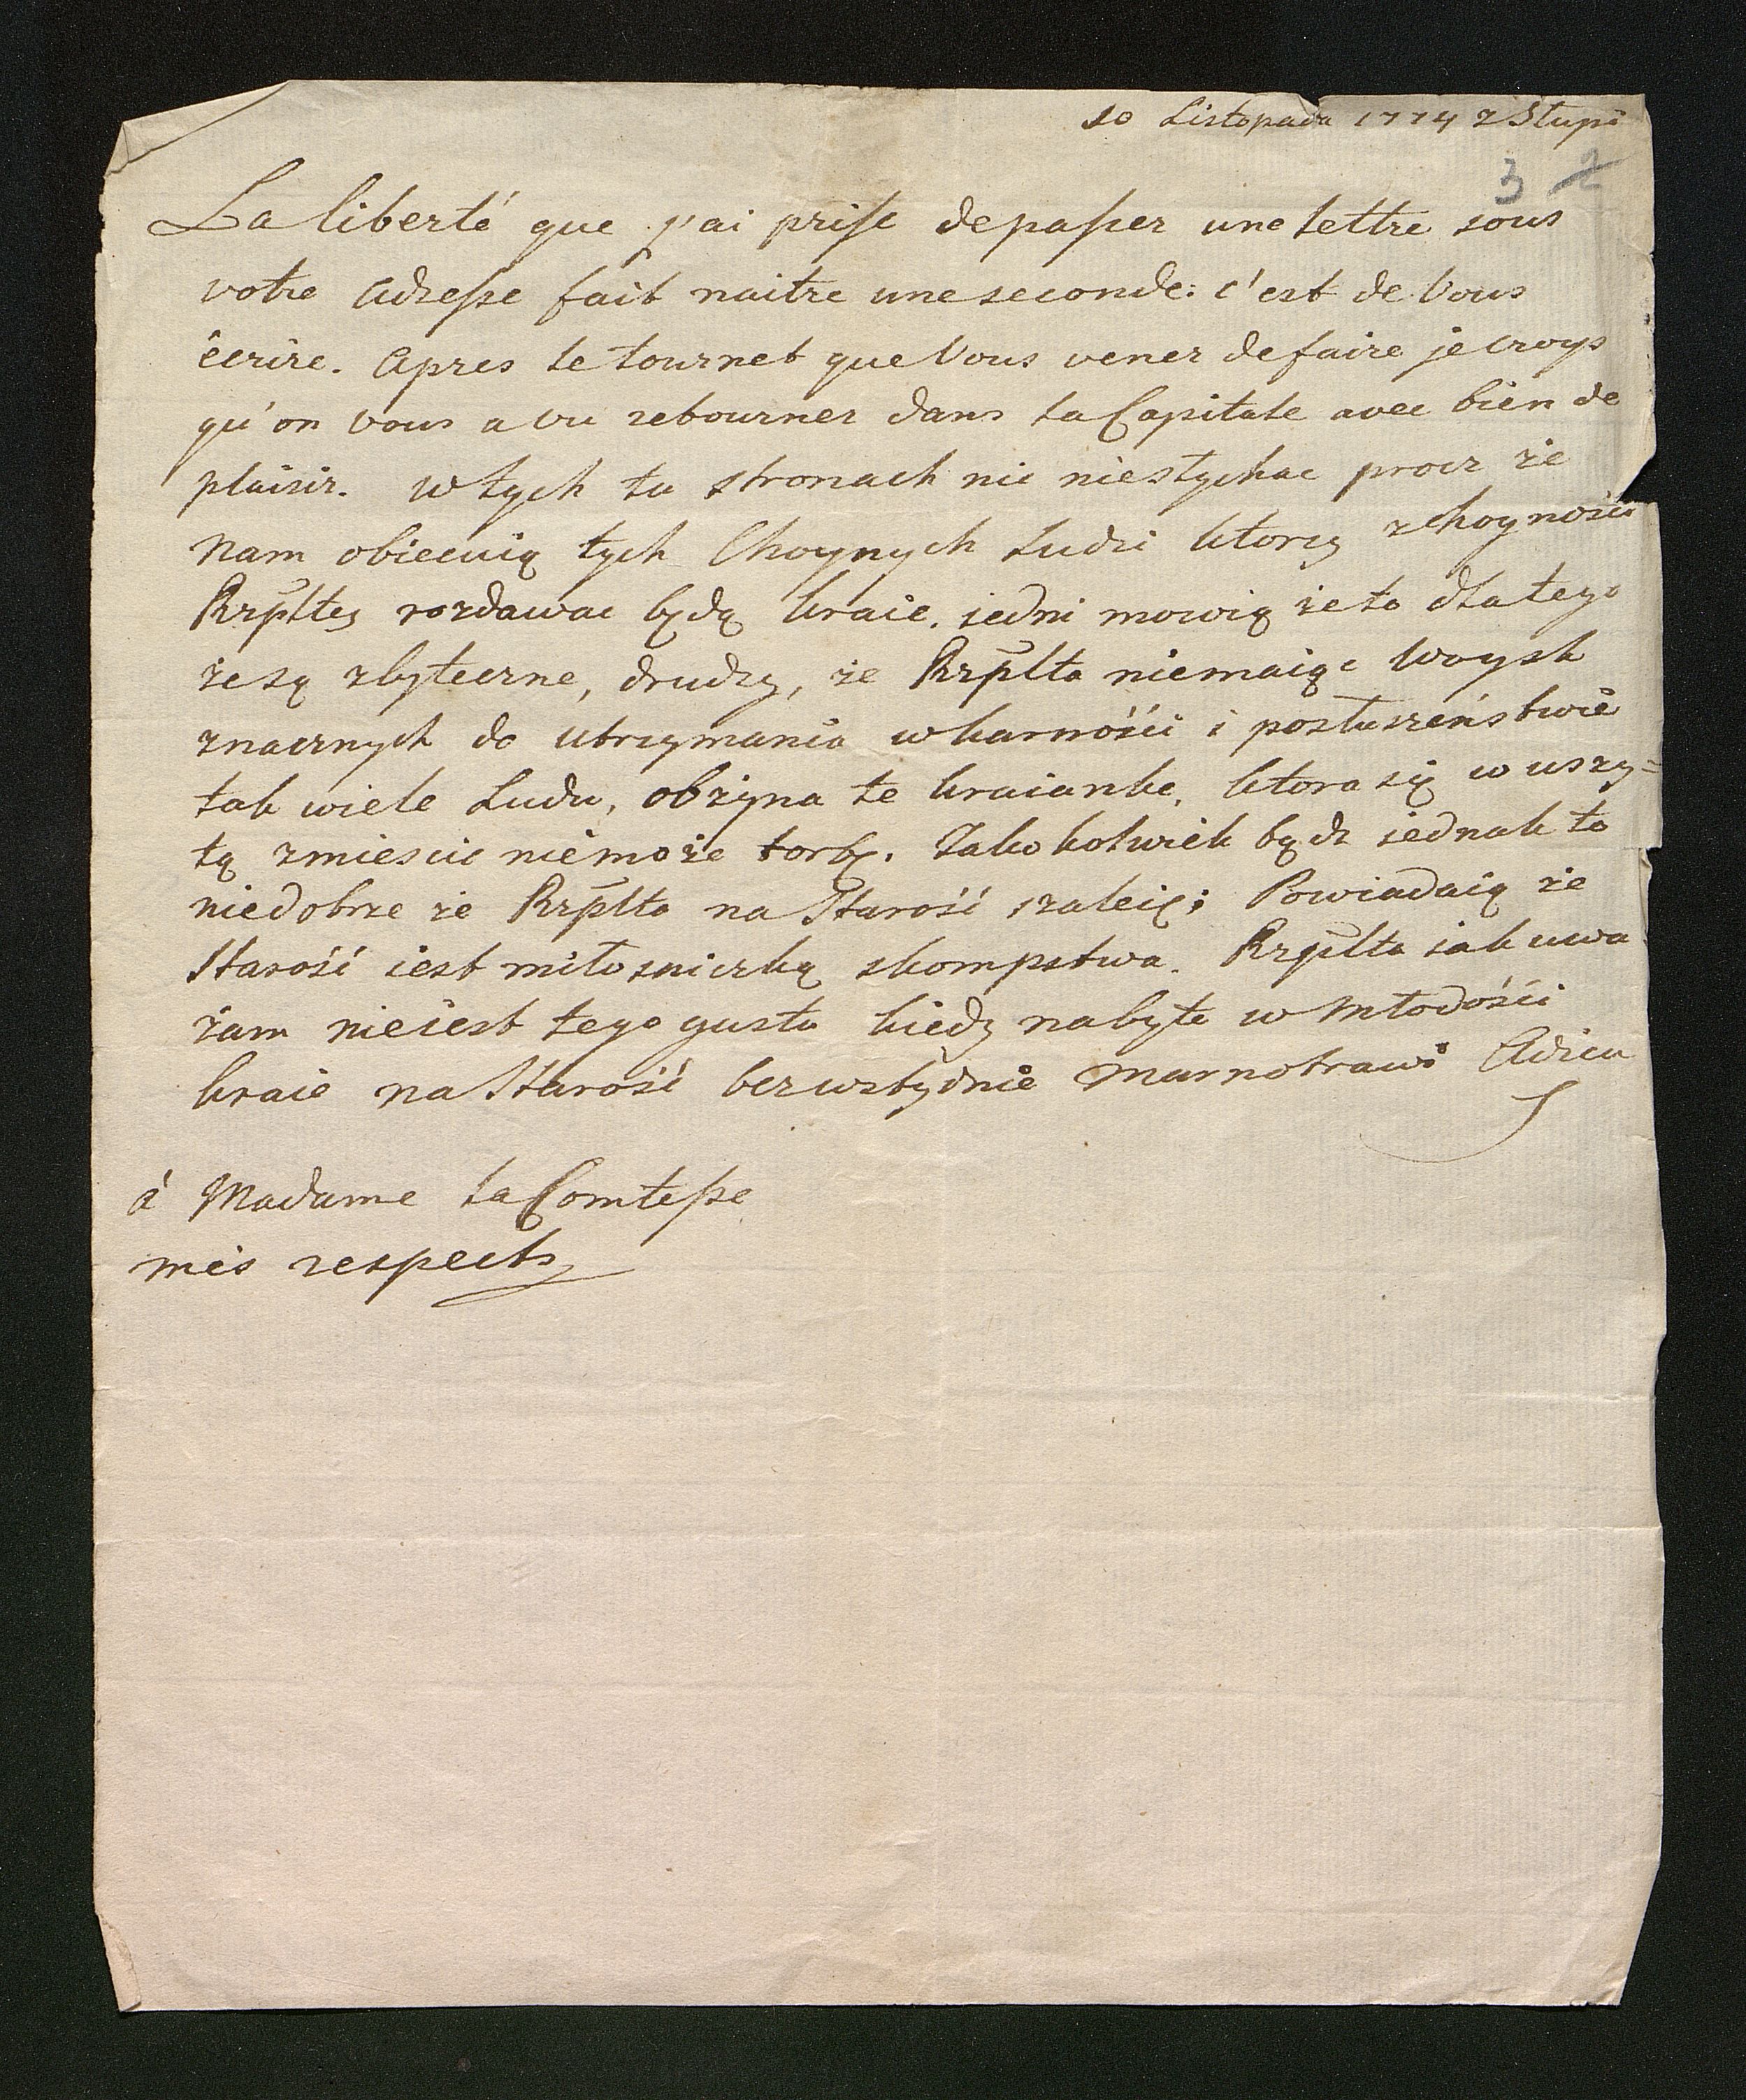 10 Listopada 1774 z Słupi
3 2
La liberté que j'ai prise de passer une lettre sous
votre Adresse fait naitre une seconde: c'est de Vous
écrire. Apres le tournet que Vous venez de faire je croys
qu'on vous a vu retourner dans la Capitale avec bien de
plaisir. w tych tu stronach nic niesłychac procz że
Nam obiecuią tych Choynych Ludzi ktorzy z choyności
Rzpltey rozdawac będą kraie. jedni mowią że to dla tego
że są zbyteczne, drudzy, że Rzplta niemaiąc Woysk
znacznych do utrzymania w karności i posłuszeństwie
tak wiele Ludu, obrzyna te kraianke, ktora się w uszy=
tą zmiescic niemoże torbę. Jakokolwiek bądz jednak to
niedobrze że Rzplta na Starość szaleię; Powiadaią że
Starość iest miłosniczką skompstwa. Rzplta iak uwa
żam nieiest tego gustu kiedy nabyte w Młodości
kraie na Starość bezwstydnie marnotrawi Adieu
à Madame la Comtesse
mes respects